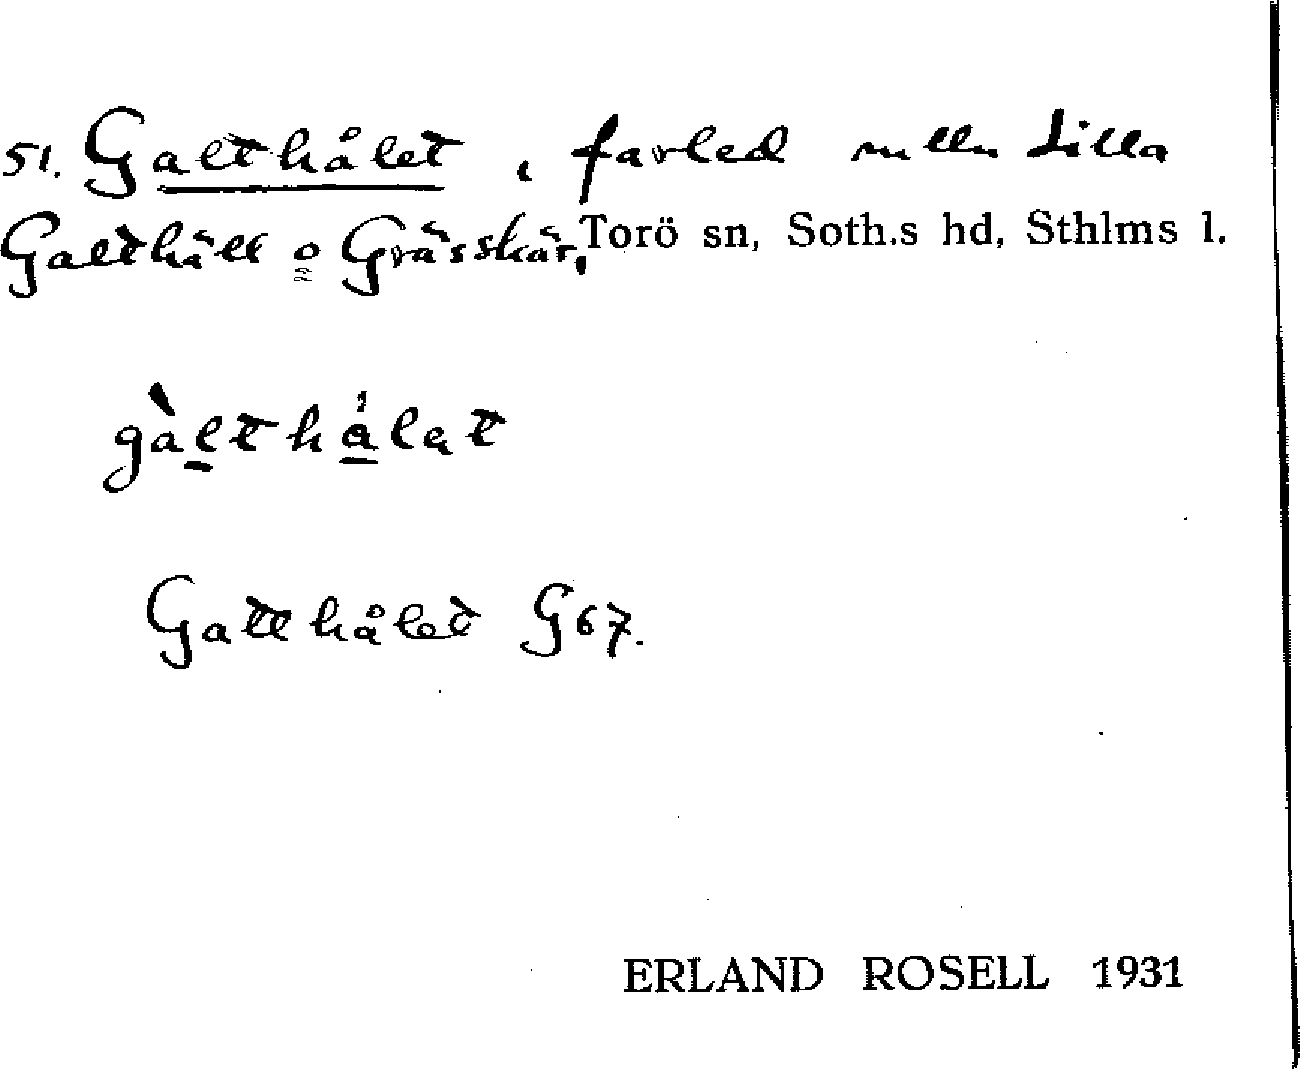 51. Galthålet, farled mlln Lilla
Galthäll o Grässkär, Torö sn, Soth.s hd, Sthlms l.
gàlthålat
Gatthålet G67.
ERLAND ROSELL 1931